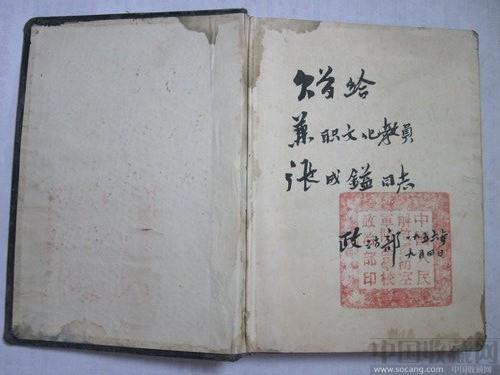 赠给
兼职文化教员
张成鎰同志
政治部 一九五六年
九月四日
中国人民
解放军防空
军 学校
政治部印
中国收藏网
www.socang.com 中国收藏网